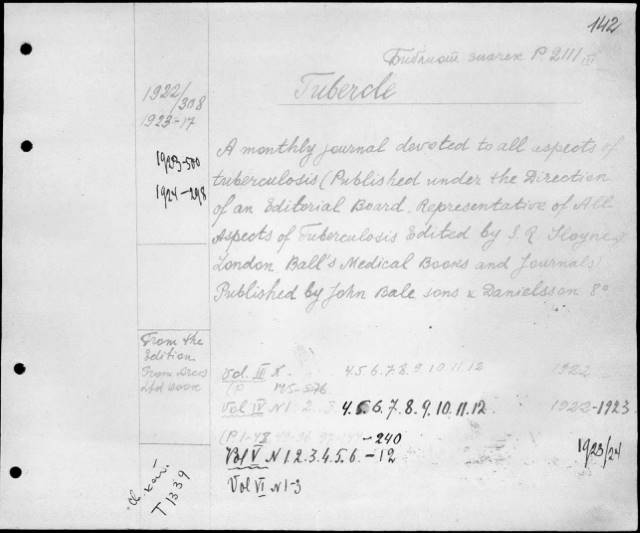 142
Библиот значек P 2111 III
Tubercle
1922/308
1923-17
1923-500
1924-298
A monthly journal devoted to all aspects of
tuberculosis (Published under the Direction
of an Editorial Board. Representative of All
Aspects of Tuberculosis Edited by S. R
London Ball's Medical Books and Journals)
Published by John Bale sons & Danielsson 8°
From the
Edition
From
Ltd
Vol. III N. 4.5.6.7.8.9.10.11.12 1922
(P.
Vol IV N 1. 2. 3. 4.5.6.7.8.9.10.11.12. 1922-1923
(P. 1-48 -240
Vol V N 1.2.3.4.5.6.-12 1923/24
Vol VI N1-3
T 1339